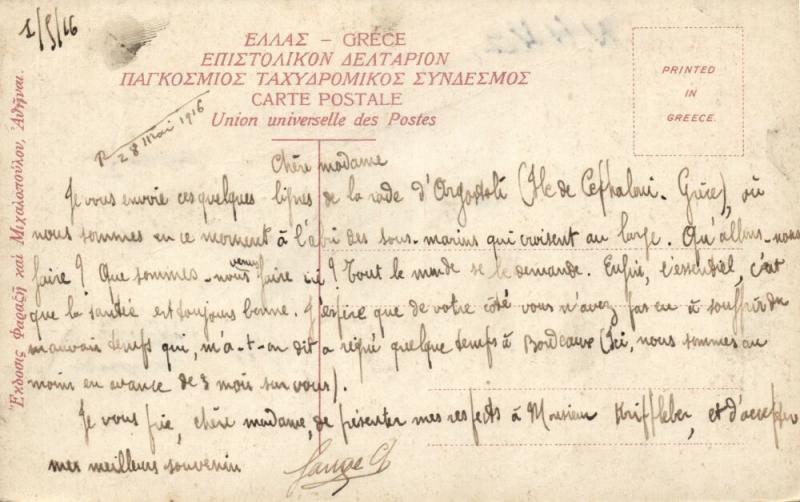 1/5/16
ΕΛΛΑΣ – GRÈCE
ΕΠΙΣΤΟΛΙΚΟΝ ΔΕΛΤΑΡΙΟΝ
ΠΑΓΚΟΣΜΙΟΣ ΤΑΧΥΔΡΟΜΙΚΟΣ ΣΥΝΔΕΣΜΟΣ
CARTE POSTALE
Union universelle des Postes
PRINTED
IN
GREECE.
Ἔκδοσις Φαραζῆ καὶ Μιχαλοπούλου, Ἀθῆναι.
R 28 Mai 1916
Chère madame
Je vous envoie ces quelques lignes de la rade d'Argostoli (Ile de Cefhaloni. Grèce), où
nous sommes en ce moment à l'abri des sous-marins qui croisent au large. Qu'allons-nous
faire ? Que sommes-nous venus faire ici ? Tout le monde se le demande. Enfin, l'essentiel, c'est
que la santé est toujours bonne. J'espère que de votre côté vous n'avez pas eu à souffrir du
mauvais temps qui, m'a-t-on dit a régné quelque temps à Bordeaux (Ici, nous sommes au
moins en avance de 3 mois sur vous).
Je vous prie, chère madame, de présenter mes respects à Monsieur Kriffleber, et d'accepter
mes meilleurs souvenirs